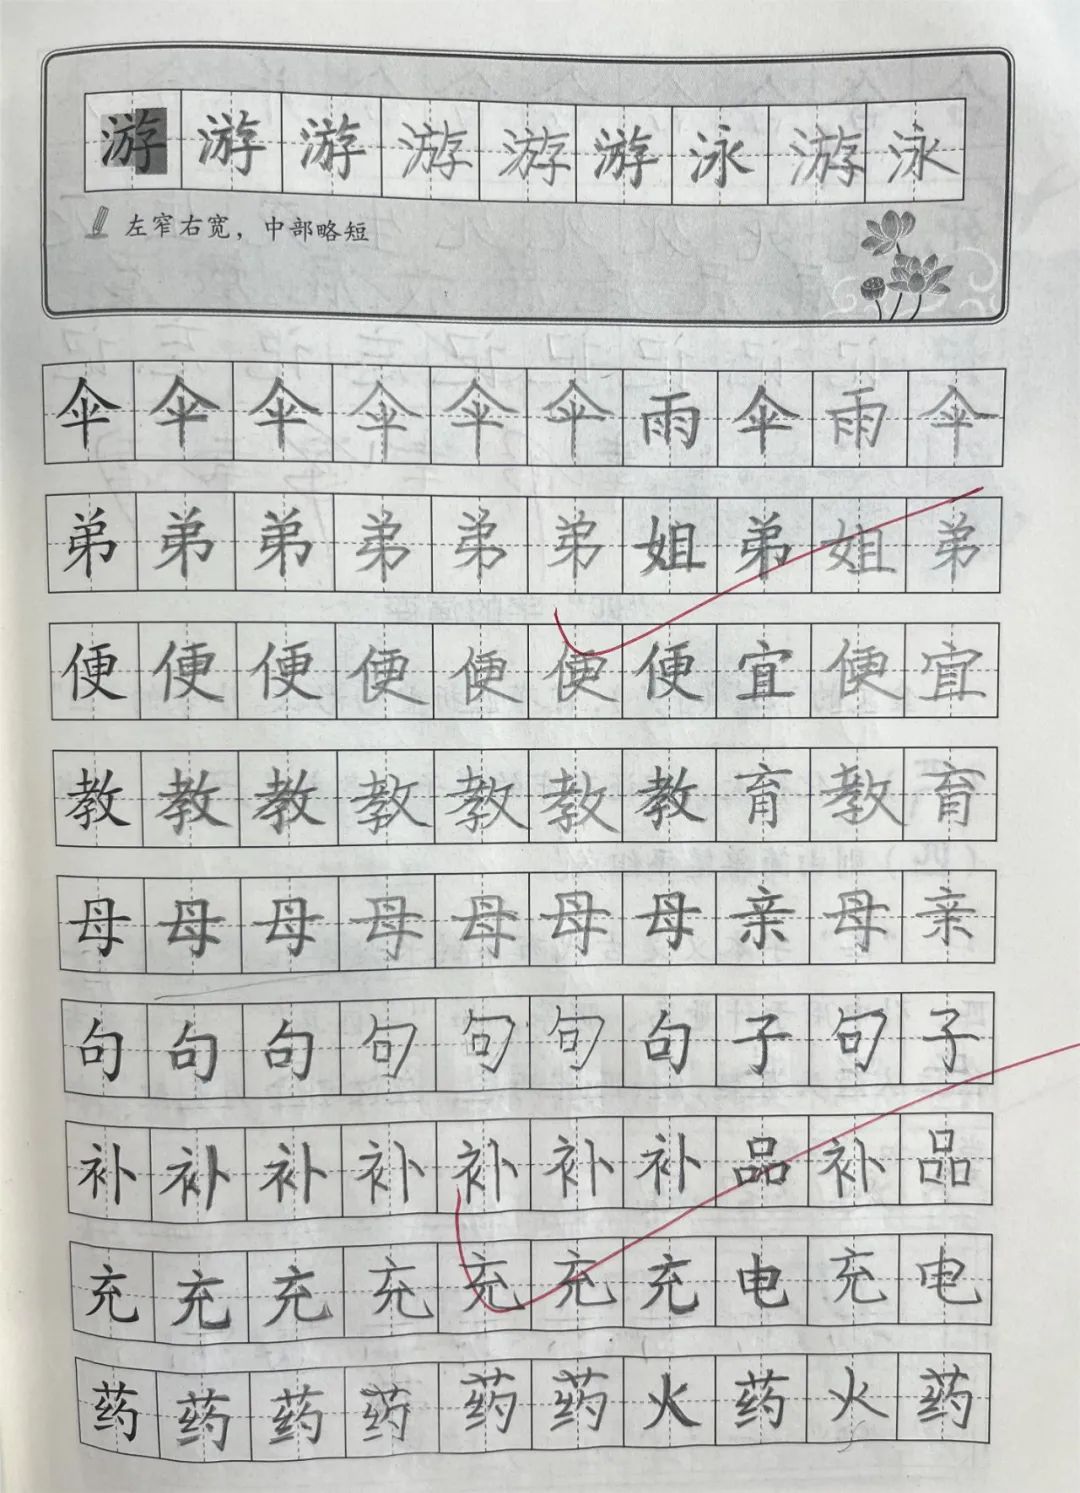 游游游游游游泳游泳
左窄右宽，中部略短
伞伞伞伞伞伞雨伞雨伞
弟弟弟弟弟弟姐弟姐弟
便便便便便便便宜便宜
教教教教教教教育教育
母母母母母母母亲母亲
句句句句句句句子句子
补补补补补补补品补品
充充充充充充充电充电
药药药药药药火药火药